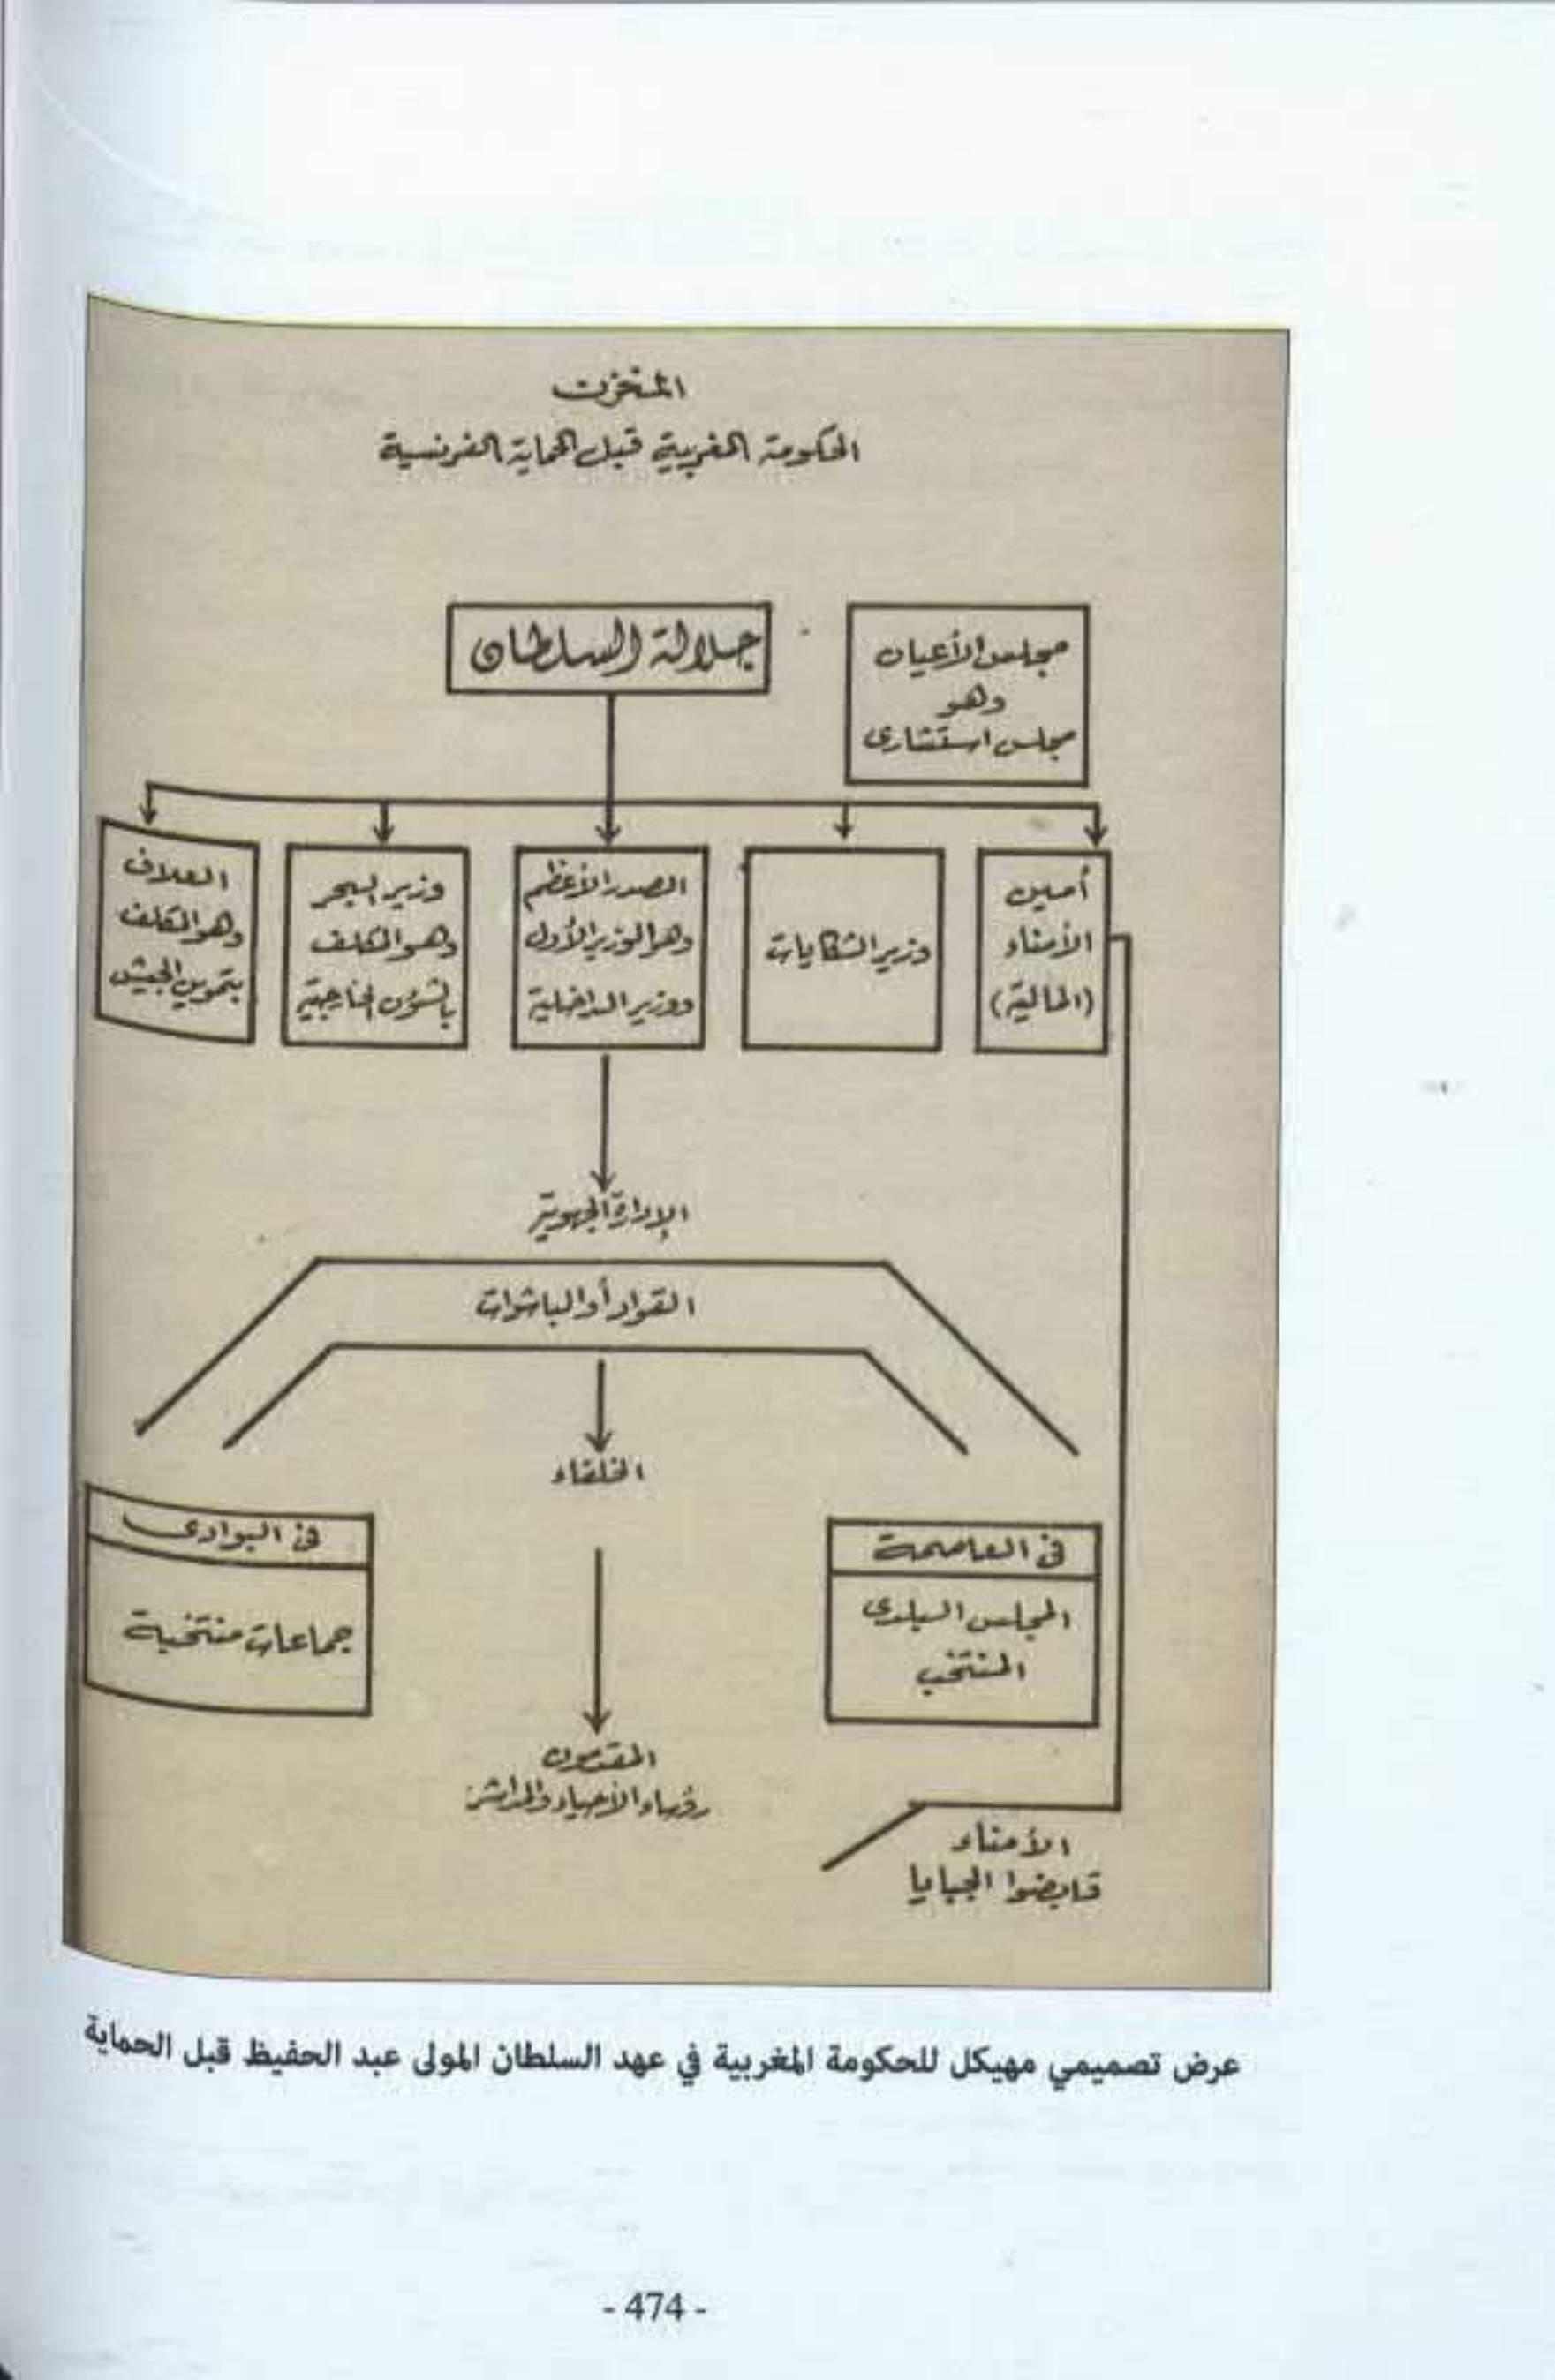 المخزن
الحكومة المغربية قبل الحماية الفرنسية
مجلس الأعيان
وهو
مجلس استشاري
جلالة السلطان
أمين
الأمناء
(المالية)
وزير الشكايات
الصدر الأعظم
وهو الوزير الأول
ووزير الداخلية
وزير البحر
وهو المكلف
بالشؤون الخارجية
العلاف
وهو المكلف
بتموين الجيش
الإدارة الجهوية
القواد أو الباشوات
الخلفاء
في العاصمة
المجلس البلدي
المنتخب
في البوادي
جماعات منتخبة
المقدمون
رؤساء الأحياء والمداشر
الأمناء
قابضوا الجبايا
عرض تصميمي مهيكل للحكومة المغربية في عهد السلطان المولى عبد الحفيظ قبل الحماية
- 474 -